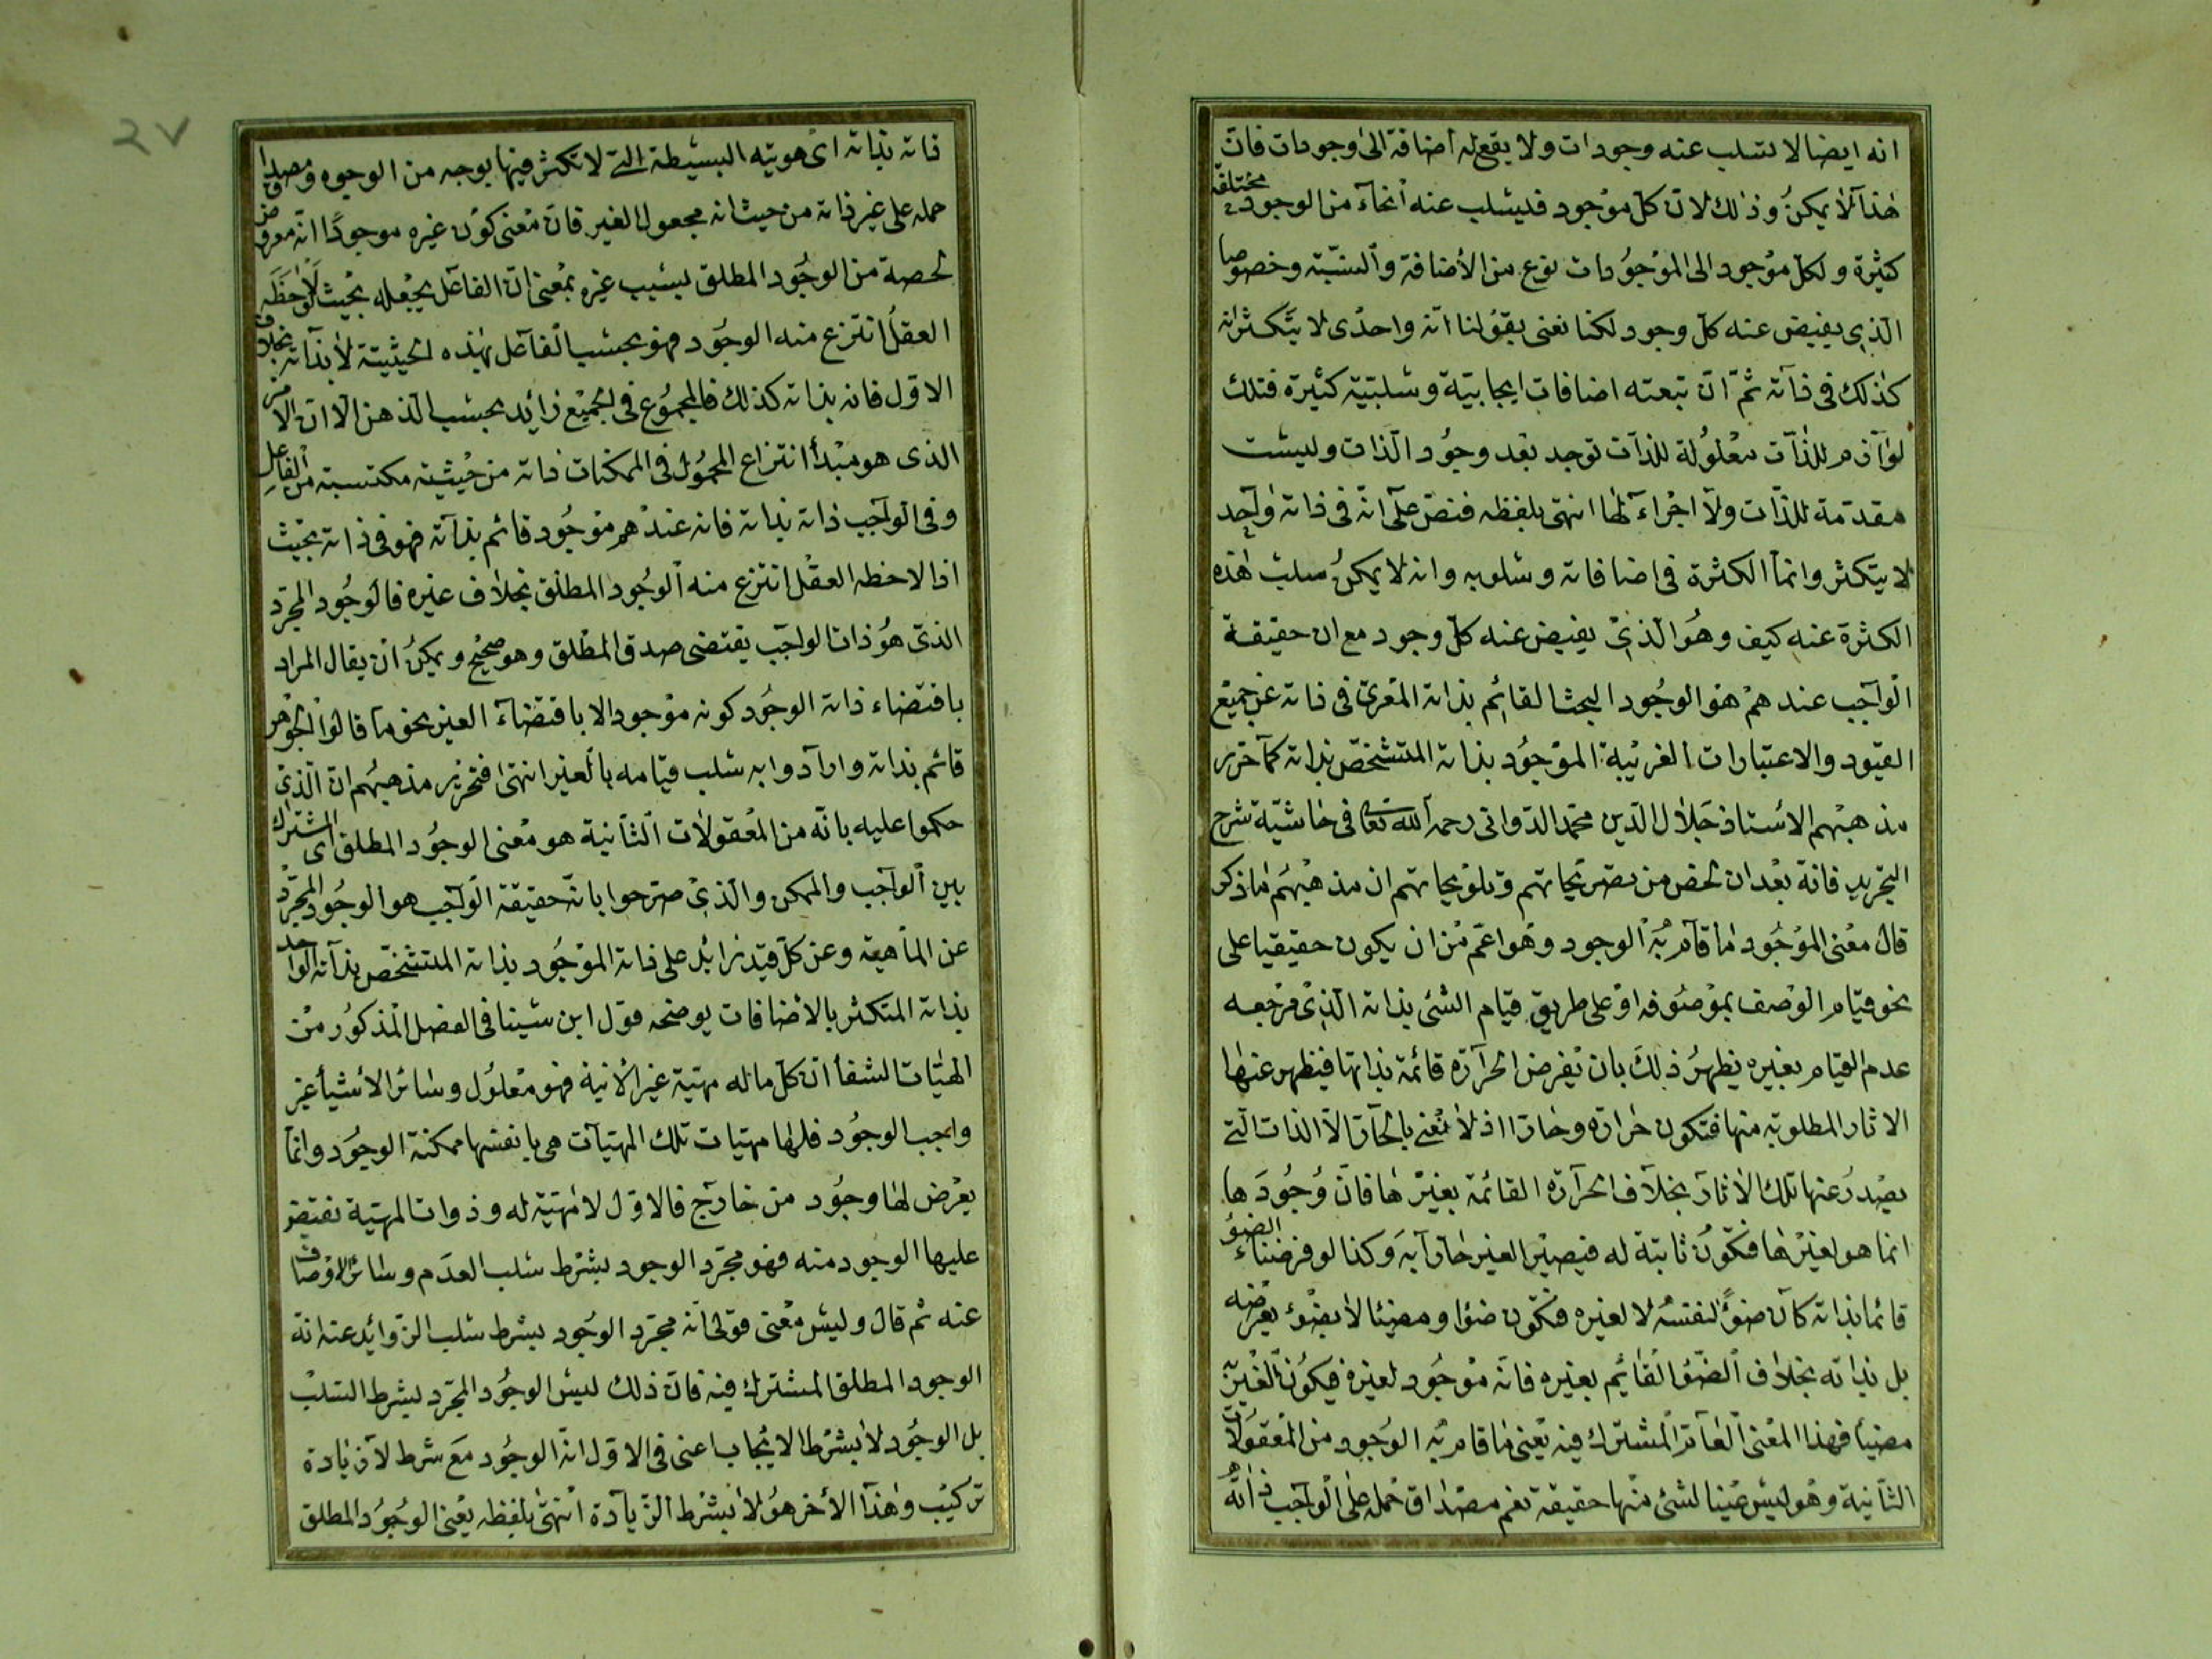 انه ايضا لا تسلب عنه وجودات ولا يقع له اضافة الى وجودات فان
هذا لا يمكن وذلك لان كل موجود فليسلب عنه انحاء من الوجود مختلفة
كثيرة ولكل موجود الى الموجودات نوع من الاضافة والنسبة وخصوصا
الذى يفيض عنه كل وجود لكنا نعنى بقولنا انه واحدى لا يتكثر انه
كذلك فى ذاته ثم ان تبعته اضافات ايجابية وسلبية كثيرة فتلك
لوازم للذات معلولة للذات توجد بعد وجود الذات وليست
مقدمة للذات ولا اجزاء لها انتهى بلفظه فنص على انه فى ذاته واحد
لا يتكثر وانما الكثرة فى اضافاته وسلوبه وانه لا يمكن سلب هذه
الكثرة عنه كيف وهو الذى يفيض عنه كل وجود مع ان حقيقة
الواجب عندهم هو الوجود البحت القائم بذاته المعرى فى ذاته عن جميع
القيود والاعتبارات الغريبة الموجود بذاته المتشخص بذاته كما حرر
مذهبهم الاستاذ جلال الدين محمد الدوانى رحمه الله تعالى فى حاشية شرح
التجريد فانه بعد ان لخص من تصريحاتهم وتلويحاتهم ان مذهبهم ما ذكر
قال معنى الموجود ما قام به الوجود وهو اعم من ان يكون حقيقيا على
نحو قيام الوصف بموصوفه او على طريق قيام الشئ بذاته الذى مرجعه
عدم القيام بغيره يظهر ذلك بان تفرض الحرارة قائمة بذاتها فيظهر عنها
الاثار المطلوبة منها فتكون حرارة وحارا اذ لا نعنى بالحار الا الذات التى
يصدر عنها تلك الاثار بخلاف الحرارة القائمة بغيرها فان وجودها
انما هو لغيرها فتكون ثابتة له فيصير الغير حارا به وكذا لو فرضنا الضوء
قائما بذاته كان ضوءا لنفسه لا لغيره فتكون ضوءا ومضيئا لا بضوء يعرضه
بل بذاته بخلاف الضوء القائم بغيره فانه موجود لغيره فيكون الغير به
مضيئا فهذا المعنى العام المشترك فيه يعنى ما قام به الوجود من المعقولات
الثانية وهو ليس عينا لشئ منها حقيقة نعم مصداق حمله على الواجب ذاته
ذاته بذاته اى هويته البسيطة التى لا تكثر فيها بوجه من الوجوه ومصداق
حمله على غير ذاته من حيث انه مجعول الغير فان معنى كون غيره موجودا انه معروض
لحصة من الوجود المطلق بسبب غيره بمعنى ان الفاعل يجعله بحيث لو لاحظه
العقل انتزع منه الوجود فهو بحسب الفاعل بهذه الحيثية لا بذاته بخلاف
الاول فانه بذاته كذلك فالمجموع فى الجميع زائد بحسب الذهن الا ان الامر
الذى هو مبدأ انتزاع المحمول فى الممكنات ذاته من حيثية مكتسبة من الفاعل
وفى الواجب ذاته بذاته فانه عندهم موجود قائم بذاته فهو فى ذاته بحيث
اذا لاحظه العقل انتزع منه الوجود المطلق بخلاف غيره فالوجود المجرد
الذى هو ذات الواجب يقتضى صدق المطلق وهو صحيح ويمكن ان يقال المراد
باقتضاء ذاته الوجود كونه موجودا لا باقتضاء الغير نحو ما قالوا الجوهر
قائم بذاته وارادوا به سلب قيامه بالغير انتهى فتحرير مذهبهم ان الذى
حكموا عليه بانه من المعقولات الثانية هو معنى الوجود المطلق اى المشترك
بين الواجب والممكن والذى صرحوا بانه حقيقة الواجب هو الوجود المجرد
عن الماهية وعن كل قيد زائد على ذاته الموجود بذاته المتشخص بذاته الواحد
بذاته المتكثر بالاضافات يوضحه قول ابن سينا فى الفصل المذكور من
الهيات الشفا ان كل ما له مهية غير الانية فهو معلول وسائر الاشيا غير
واجب الوجود فلها مهيات تلك المهيات هى بانفسها ممكنة الوجود وانما
يعرض لها وجود من خارج فالاول لا مهية له وذوات المهية تفيض
عليها الوجود منه فهو مجرد الوجود بشرط سلب العدم وسائر الاوصاف
عنه ثم قال وليس معنى قولى انه مجرد الوجود بشرط سلب الزوائد عنه انه
الوجود المطلق المشترك فيه فان ذلك ليس الوجود المجرد بشرط السلب
بل الوجود لا بشرط الايجاب اعنى فى الاول انه الوجود مع شرط لا زيادة
تركيب وهذا الاخر هو لا بشرط الزيادة انتهى بلفظه يعنى الوجود المطلق
٢٧